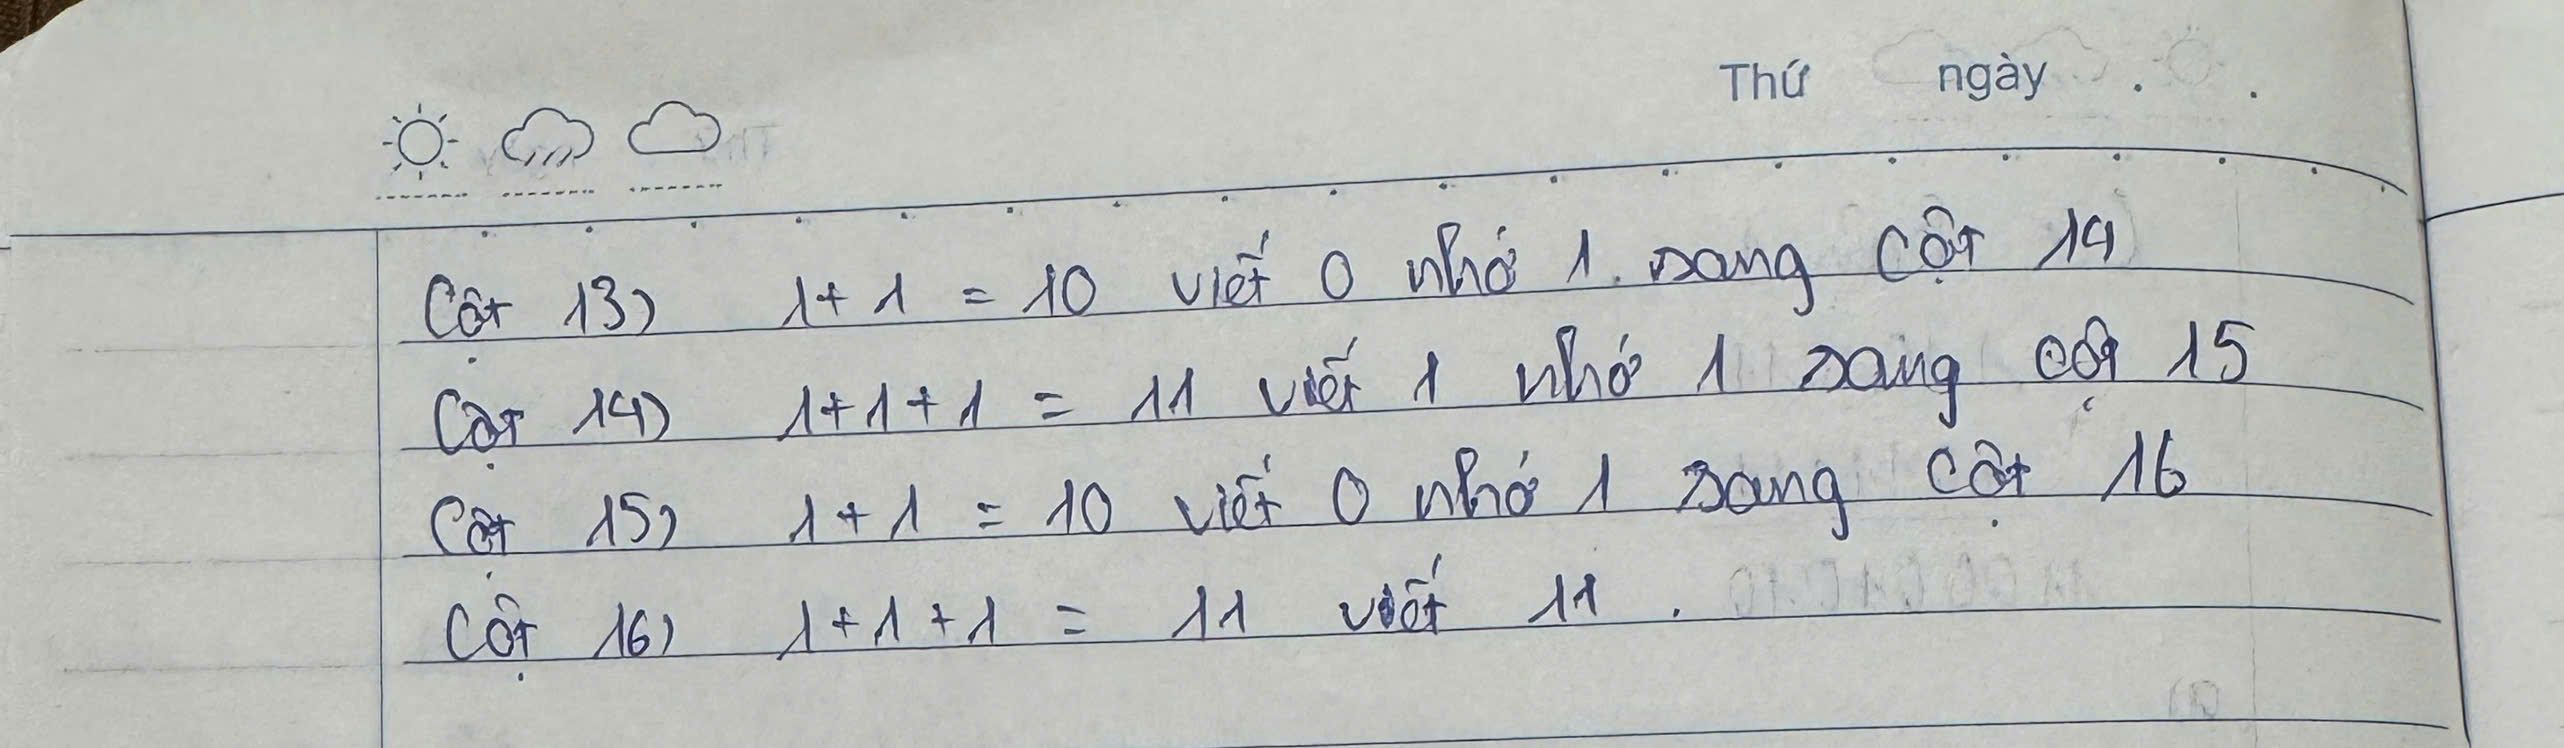 Thứ ngày . .
Cột 13) 1+1 = 10 viết 0 nhớ 1. sang cột 14
Cột 14) 1+1+1 = 11 viết 1 nhớ 1 sang cột 15
Cột 15) 1+1 = 10 viết 0 nhớ 1 sang cột 16
Cột 16) 1+1+1 = 11 viết 11 .